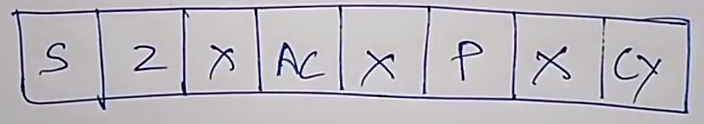 S Z X AC X P X CY